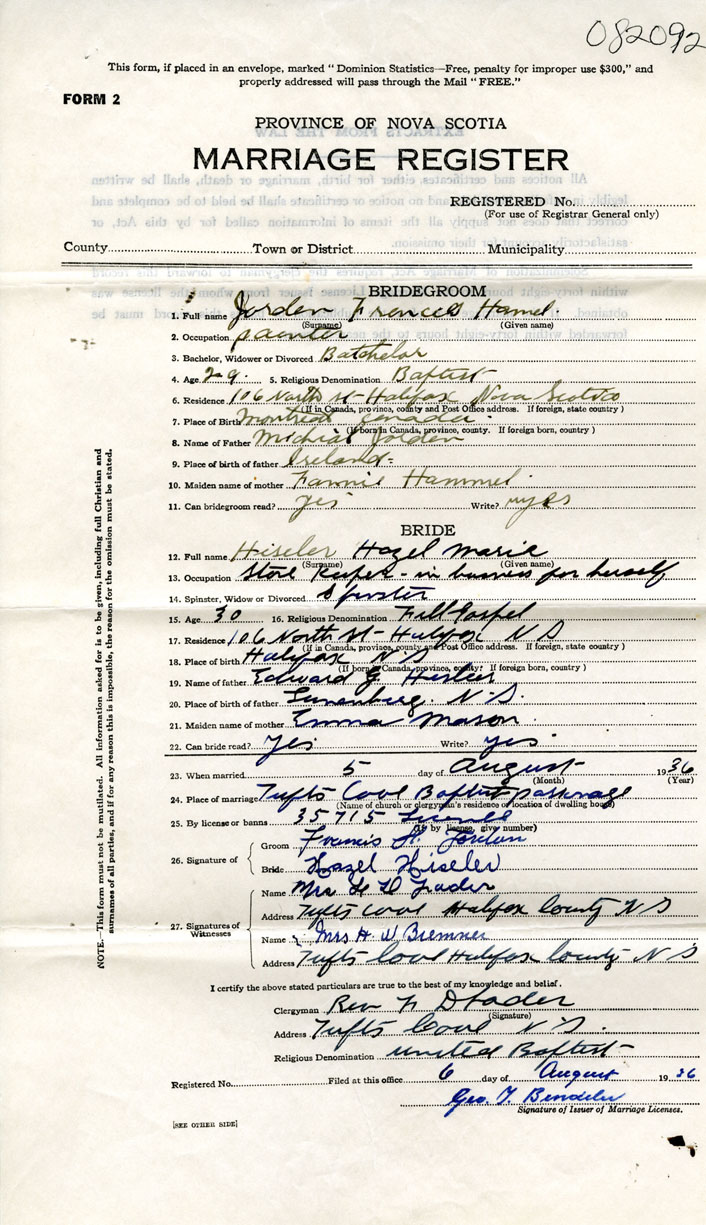 082092
This form, if placed in an envelope, marked "Dominion Statistics—Free, penalty for improper use $300," and
properly addressed will pass through the Mail "FREE."
FORM 2
PROVINCE OF NOVA SCOTIA
MARRIAGE REGISTER
REGISTERED No.
(For use of Registrar General only)
County Town or District Municipality
BRIDEGROOM
1. Full name Jorden Frances Hamel
(Surname) (Given name)
2. Occupation painter
3. Bachelor, Widower or Divorced Batchelor
4. Age 29. 5. Religious Denomination Baptist
6. Residence 106 North st- Halifax Nova Scotia
(If in Canada, province, county and Post Office address. If foreign, state country)
7. Place of Birth Montreal Canada
(If born in Canada, province, county. If foreign born, country)
8. Name of Father Michial Jorden
9. Place of birth of father Ireland
10. Maiden name of mother Fannie Hammel
11. Can bridegroom read? yes Write? yes
BRIDE
12. Full name Hiseler Hazel Marie
(Surname) (Given name)
13. Occupation Store Keeper - in business for herself
14. Spinster, Widow or Divorced Spinster
15. Age 30 16. Religious Denomination Full Gospel
17. Residence 106 North st- Halifax N S
(If in Canada, province, county and Post Office address. If foreign, state country)
18. Place of birth Halifax N.S.
(If born in Canada, province, county? If foreign born, country)
19. Name of father Edward G
20. Place of birth of father Lunenburg N.S.
21. Maiden name of mother Emma Mason
22. Can bride read? yes Write? yes
23. When married 5 day of August 1936
(Month) (Year)
24. Place of marriage Tufts Cove Baptist parsonage
(Name of church or clergyman's residence or location of dwelling house)
25. By license or banns 35715 License
(If by license, give number)
26. Signature of
Groom Francis H. Jordan
Bride Hazel Hiseler
27. Signatures of Witnesses
Name Mrs F D Fader
Address Tufts Cove Halifax County N S
Name Mrs H. W Bremner
Address Tufts Cove Halifax County N S
I certify the above stated particulars are true to the best of my knowledge and belief.
Clergyman Rev F D Fader
(Signature)
Address Tufts Cove N S.
Religious Denomination United Baptist
Registered No. Filed at this office 6 day of August 1936
Geo.
Signature of Issuer of Marriage Licenses.
[SEE OTHER SIDE]
NOTE.—This form must not be mutilated. All information asked for is to be given, including full Christian and
surnames of all parties, and if for any reason this is impossible, the reason for the omission must be stated.